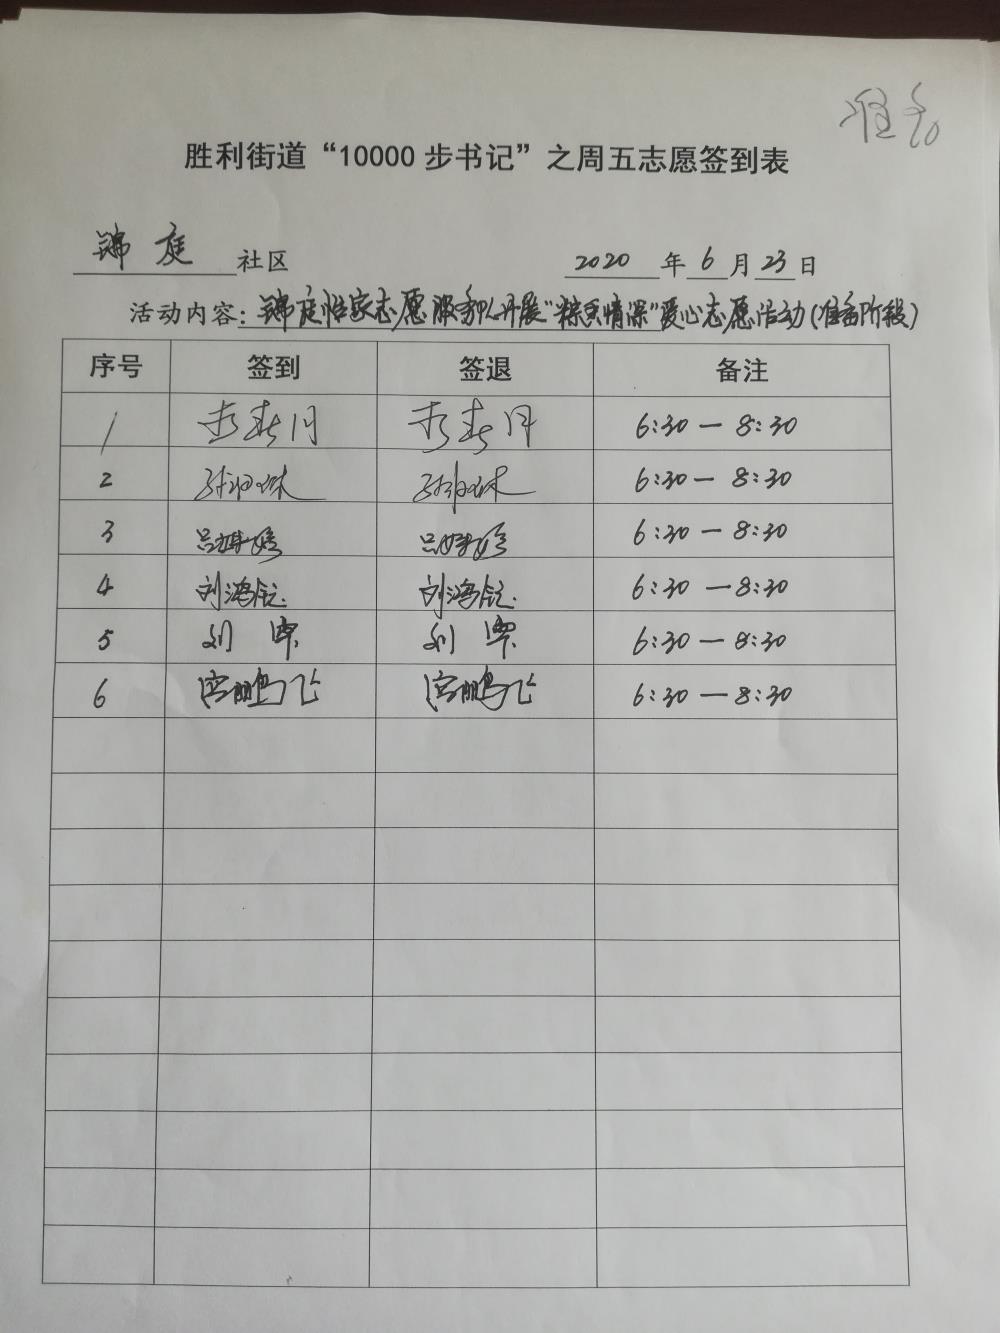 准备
胜利街道“10000步书记”之周五志愿签到表
锦庭社区 2020年6月23日
活动内容：锦庭怡家志愿服务队开展“粽香情深”爱心志愿活动（准备阶段）
序号 签到 签退 备注
1 6:30—8:30
2 6:30—8:30
3 6:30—8:30
4 刘鸿 刘鸿 6:30—8:30
5 刘 刘 6:30—8:30
6 宫鹏飞 宫鹏飞 6:30—8:30